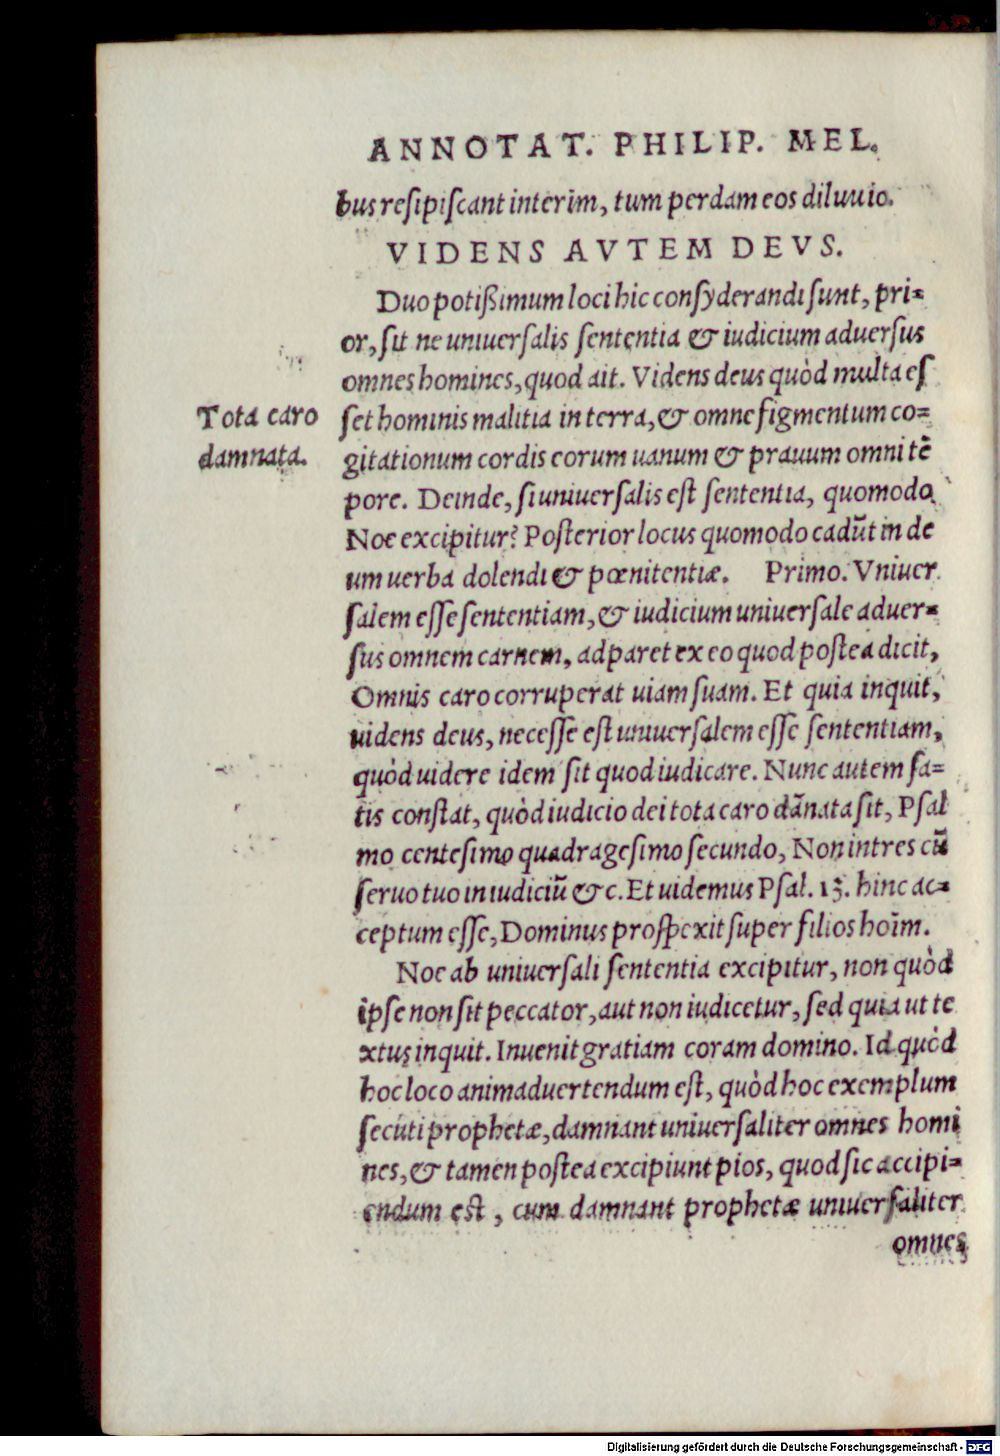 ANNOTAT. PHILIP. MEL.
bus resipiscant interim, tum perdam eos diluuio.
VIDENS AVTEM DEVS.
Duo potißimum loci hic consyderandi sunt, pri-
or, sit ne uniuersalis sententia & iudicium aduersus
omnes homines, quod ait. Videns deus quòd multa es
Tota caro
damnata.
set hominis malitia in terra, & omne figmentum co-
gitationum cordis eorum uanum & prauum omni tẽ
pore. Deinde, si uniuersalis est sententia, quomodo
Noe excipitur? Posterior locus quomodo cadũt in de
um uerba dolendi & pœnitentiæ. Primo. Vniuer
salem esse sententiam, & iudicium uniuersale aduer-
sus omnem carnem, adparet ex eo quod postea dicit,
Omnis caro corruperat uiam suam. Et quia inquit,
uidens deus, necesse est uniuersalem esse sententiam,
quòd uidere idem sit quod iudicare. Nunc autem sa-
tis constat, quòd iudicio dei tota caro dãnata sit, Psal
mo centesimo quadragesimo secundo, Non intres cũ
seruo tuo in iudiciũ &c. Et uidemus Psal. 13. hinc ac-
ceptum esse, Dominus prospexit super filios hoĩm.
Noe ab uniuersali sententia excipitur, non quòd
ipse non sit peccator, aut non iudicetur, sed quia ut te
xtus inquit. Inuenit gratiam coram domino. Id quòd
hoc loco animaduertendum est, quòd hoc exemplum
secuti prophetæ, damnant uniuersaliter omnes homi
nes, & tamen postea excipiunt pios, quod sic accipi-
endum est, cum damnant prophetæ uniuersaliter
omnes
Digitalisierung gefördert durch die Deutsche Forschungsgemeinschaft - DFG